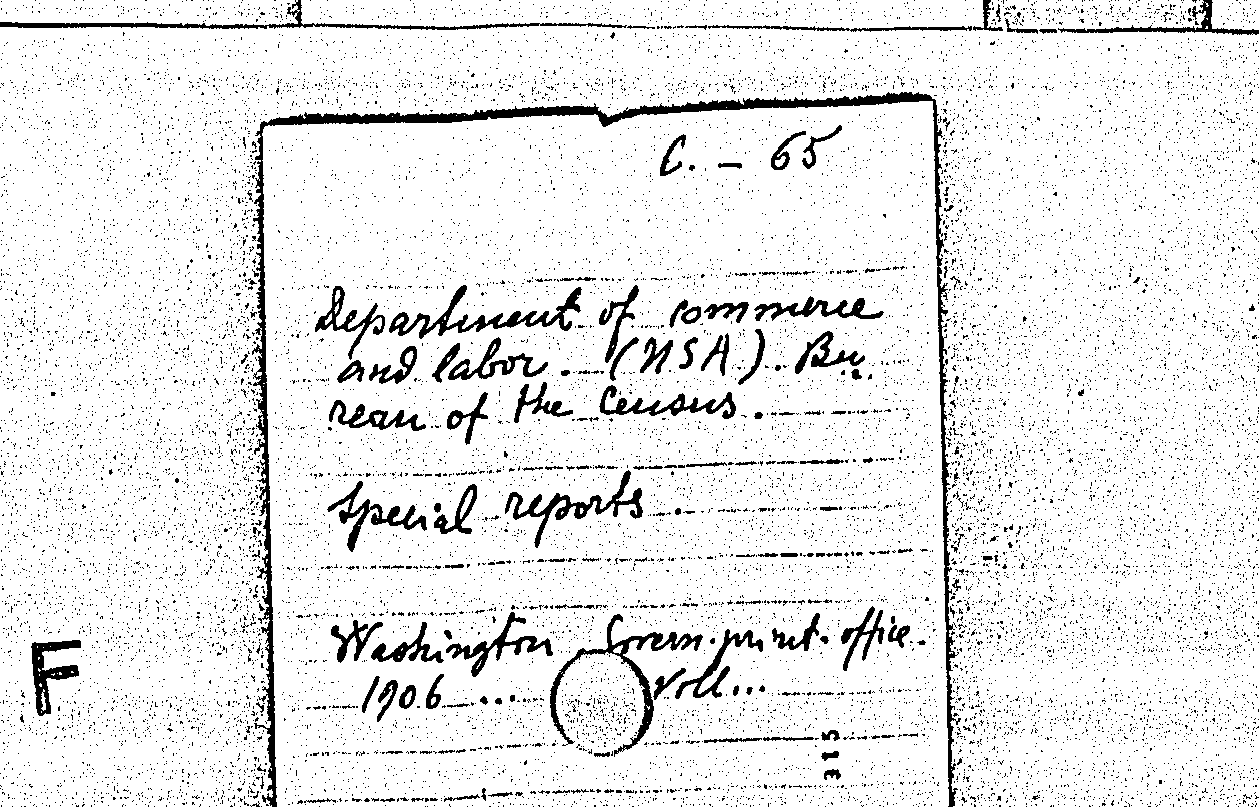 C. - 65
Department of commerce
and labor. (USA). Bu
reau of the Census.
Special reports.
Washington Govern.print.office.
1906 ... Voll...
F
315